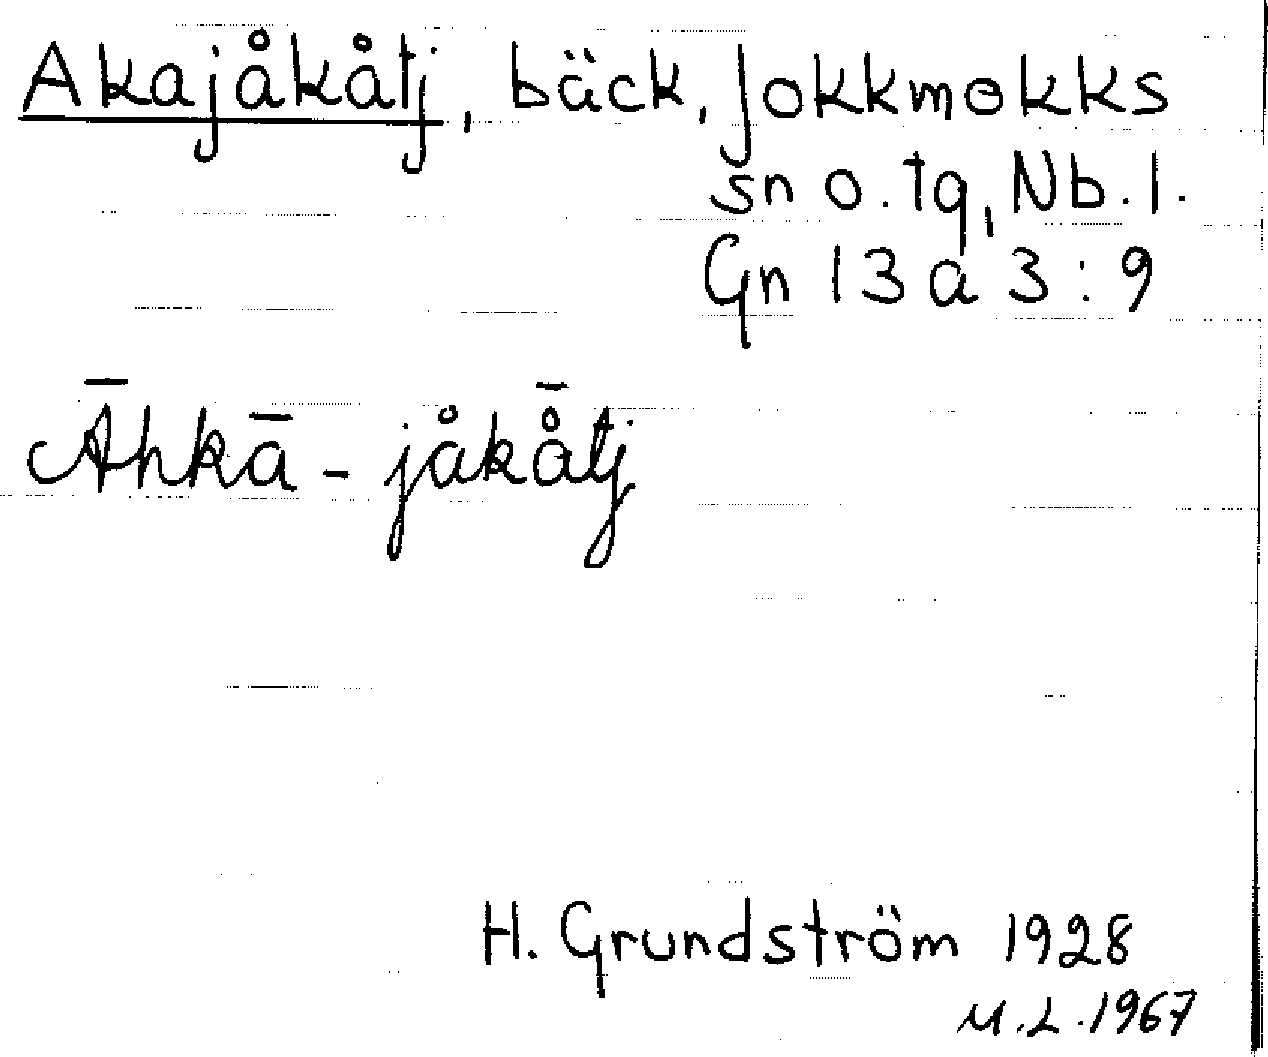 Akajåkåtj, bäck, Jokkmokks
sn o. tg, Nb. l.
Gn 13 a 3 : 9
Āhkā - jåkå̄tj
H. Grundström 1928
M.L. 1967